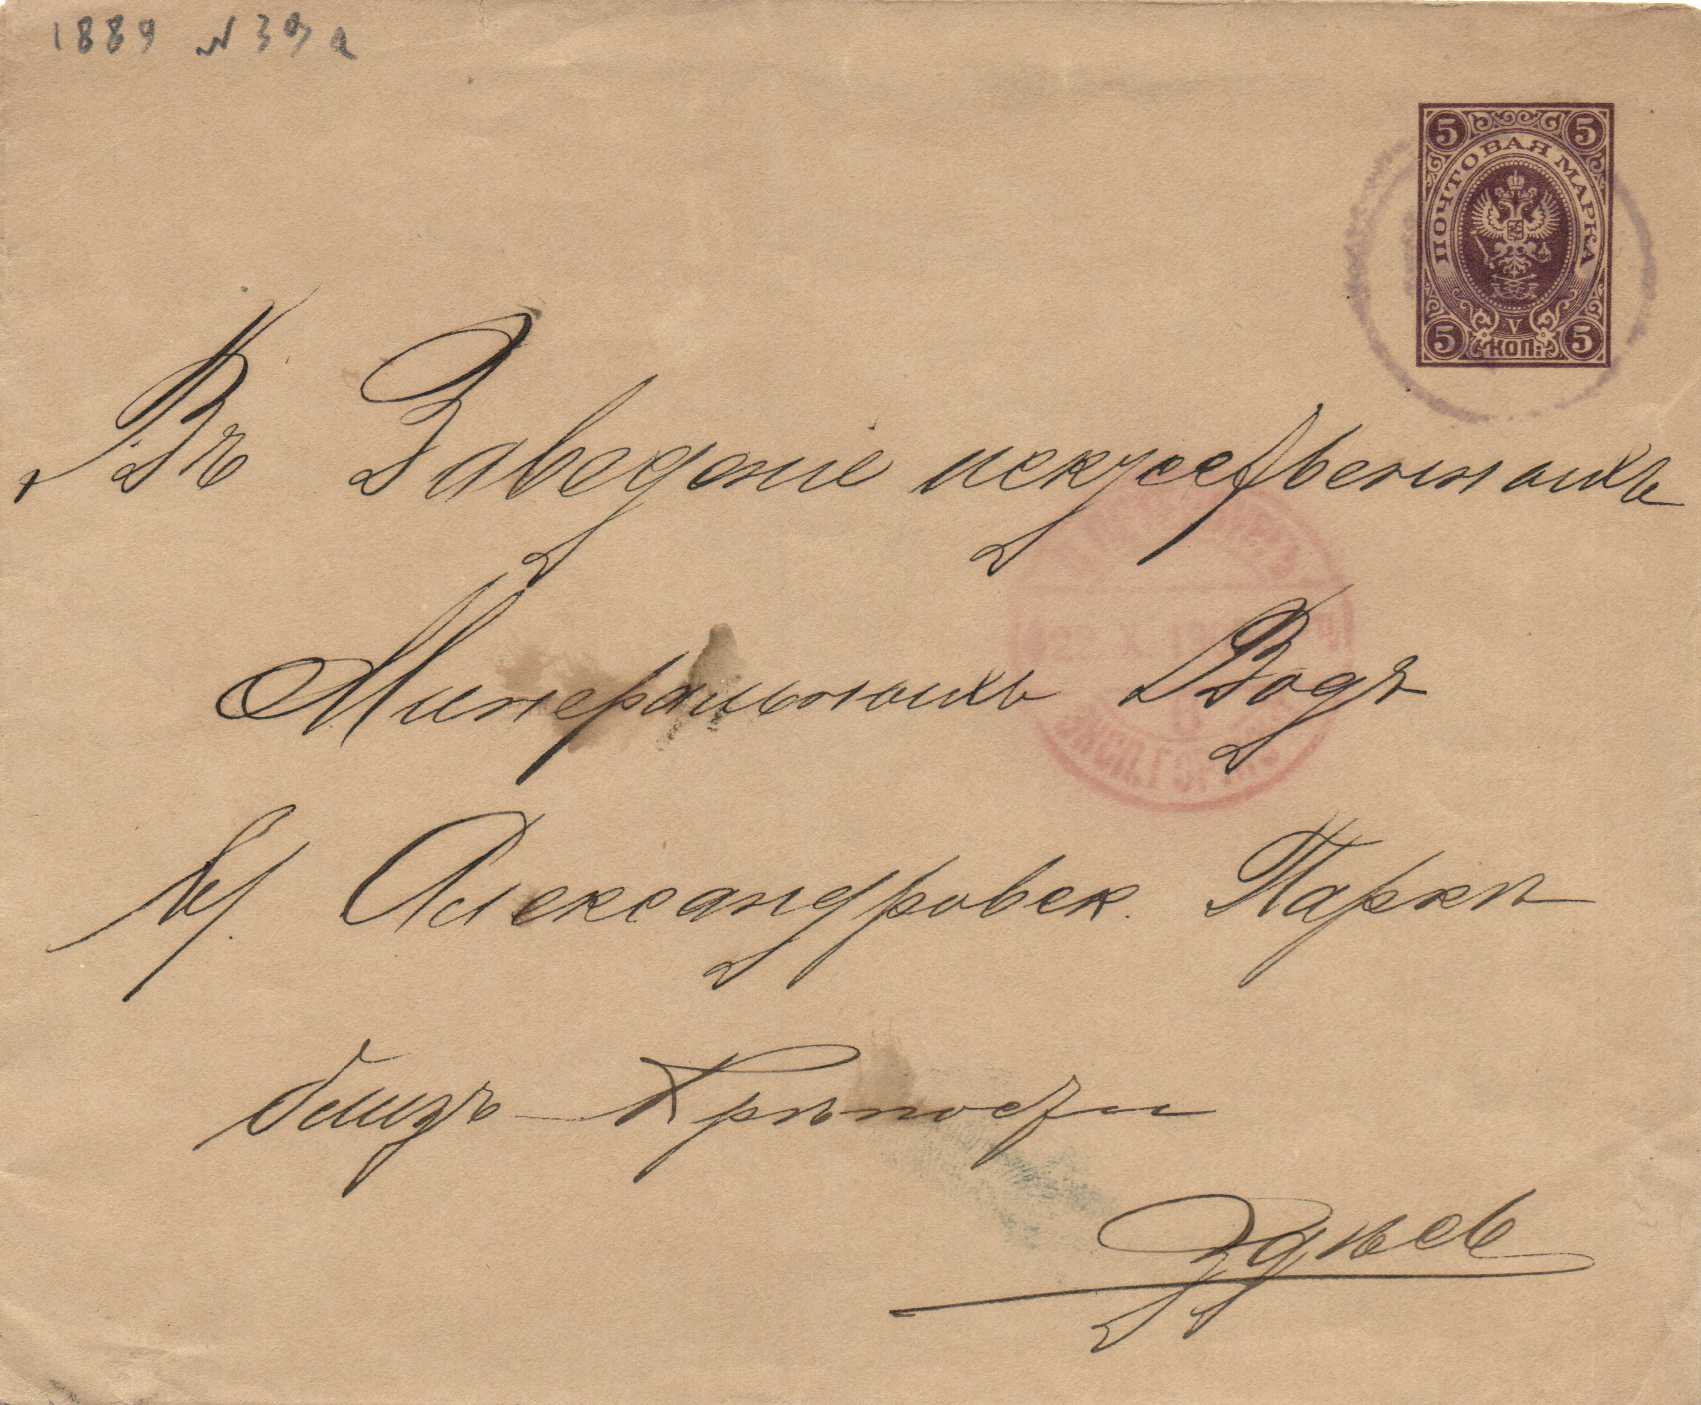 1889 № 39 а
5 5
ПОЧТОВАЯ МАРКА
V
5 КОП. 5
Въ Заведеніе искусственныхъ
Минеральныхъ Водъ
въ Александровск. Паркѣ
близъ Крѣпости
Здѣсь